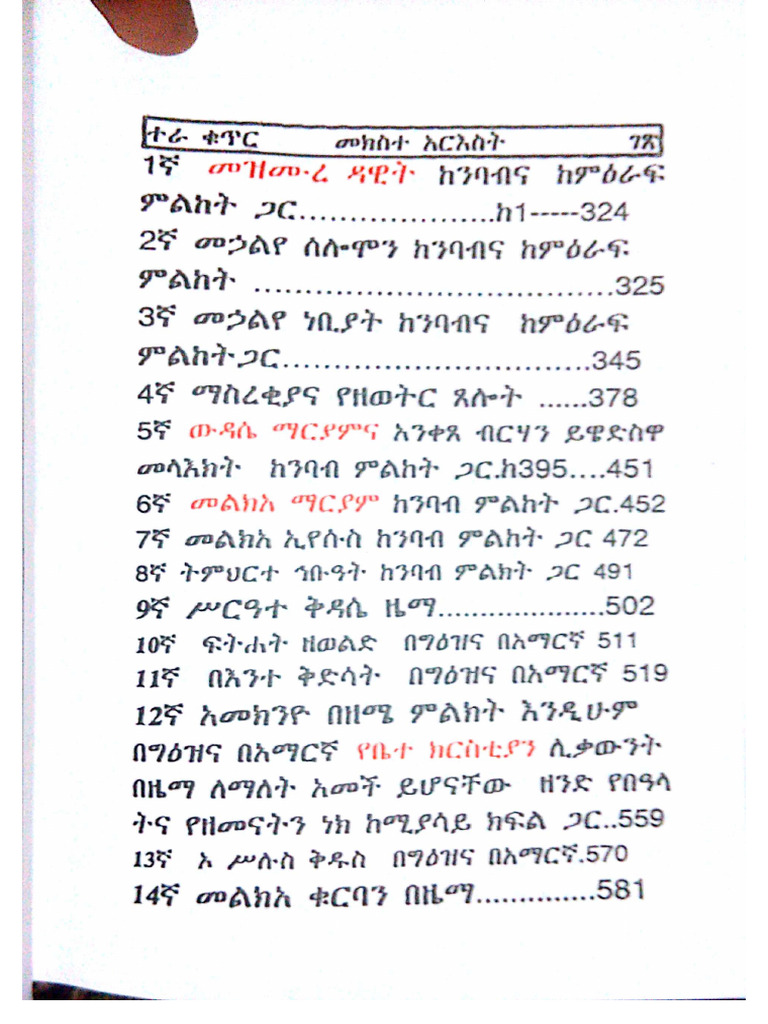 ተራ ቁጥር መክስተ አርእስት ገጽ
1ኛ መዝሙረ ዳዊት ከንባብና ከምዕራፍ
ምልከት ጋር....................ከ1-----324
2ኛ መኃልየ ሰሎሞን ከንባብና ከምዕራፍ
ምልከት .....................................325
3ኛ መኃልየ ነቢያት ከንባብና ከምዕራፍ
ምልከት ጋር...............................345
4ኛ ማስረቂያና የዘወትር ጸሎት ......378
5ኛ ውዳሴ ማርያምና አንቀጸ ብርሃን ይዌድስዋ
መላእክት ከንባብ ምልከት ጋር.ከ395....451
6ኛ መልክአ ማርያም ከንባብ ምልከት ጋር.452
7ኛ መልክአ ኢየሱስ ከንባብ ምልከት ጋር 472
8ኛ ትምህርተ ኅቡዓት ከንባብ ምልክት ጋር 491
9ኛ ሥርዓተ ቅዳሴ ዜማ.....................502
10ኛ ፍትሐት ዘወልድ በግዕዝና በአማርኛ 511
11ኛ በእንተ ቅድሳት በግዕዝና በአማርኛ 519
12ኛ አመክንዮ በዘሜ ምልክት እንዲሁም
በግዕዝና በአማርኛ የቤተ ክርስቲያን ሊቃውንት
በዜማ ለማለት አመች ይሆናቸው ዘንድ የበዓላ
ትና የዘመናትን ነክ ከሚያሳይ ክፍል ጋር..559
13ኛ ኦ ሥሉስ ቅዱስ በግዕዝና በአማርኛ.570
14ኛ መልክአ ቁርባን በዜማ...............581